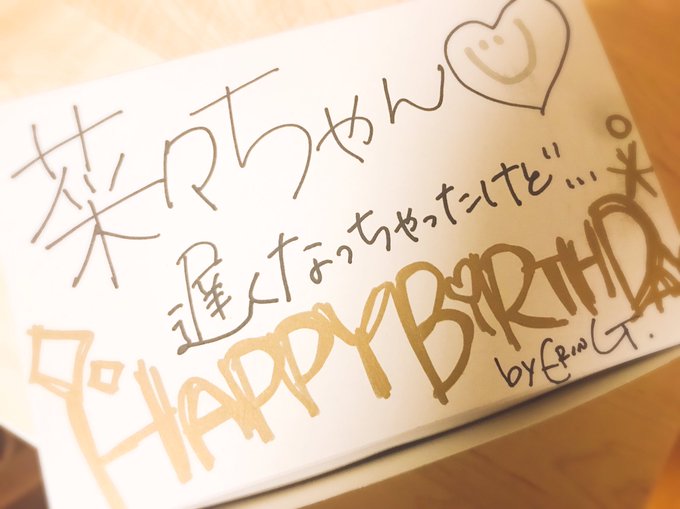 菜々ちゃん
遅くなっちゃったけど...
HAPPY BiRTHDAY
by ERIN G.